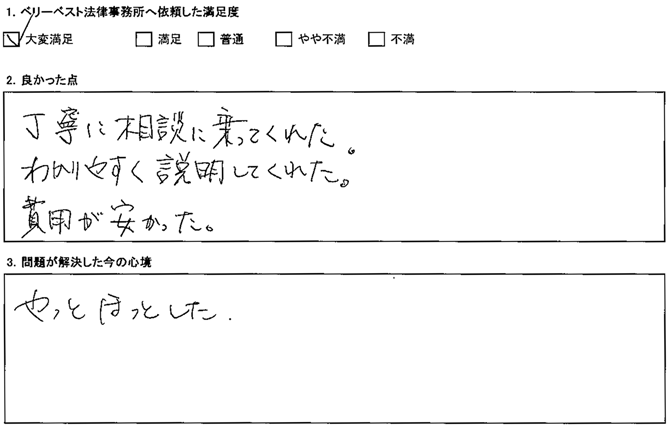 1. ベリーベスト法律事務所へ依頼した満足度
☑ 大変満足 □ 満足 □ 普通 □ やや不満 □ 不満
2. 良かった点
丁寧に相談に乗ってくれた。
わかりやすく説明してくれた。
費用が安かった。
3. 問題が解決した今の心境
やっとほっとした.